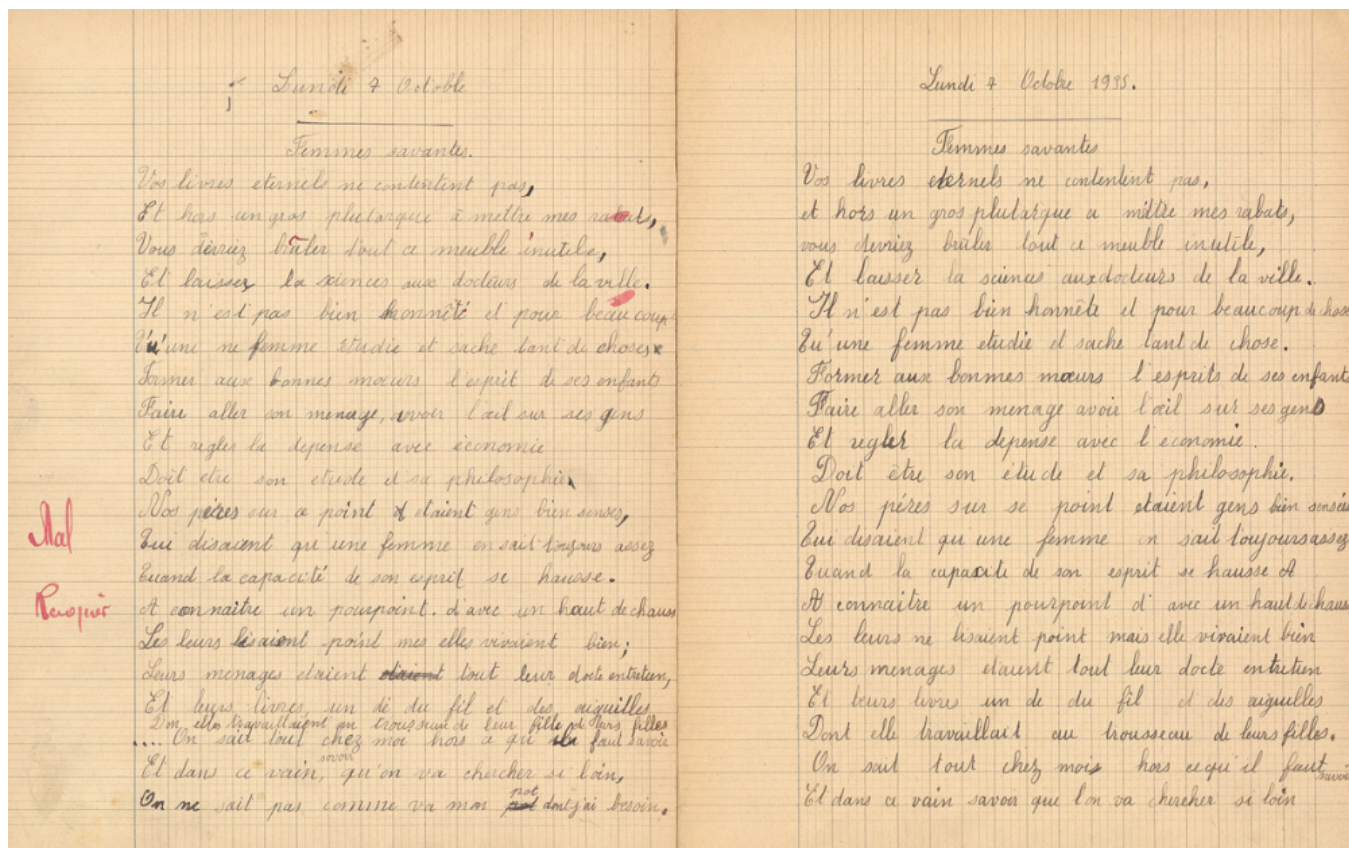 Lundi 7 Octoble
Femmes savantes.
Vos livres eternels ne contentent pas,
Et hors un gros plutarque à mettre mes rabats,
Vous devriez brûler tout ce meuble inutile,
Et laissez la sciences aux docteurs de la ville.
Il n'est pas bien honnêtè et pour beaucoup
Qu'une ne femme etudie et sache tant de choses
Former aux bonnes mœurs l'esprit de ses enfants
Faire aller son menage, avoir l'œil sur ses gens
Et regler la depense avec economie
Doit etre son etude et sa philosophie
Mal
Nos péres sur ce point etaient gens bien senses,
Qui disaient qu'une femme en sait toujours assez
Quand la capacité de son esprit se hausse.
A connaître un pourpoint. d'avec un haut de chauss
Les leurs lisaient point mes elles vivaient bien;
Leurs menages etaient etaient tout leur docte entretien,
Et leurs livres, un dé du fil et des aiguilles
Don elles travaillaient au trousseau de leur fille d leurs filles
.... On sait tout chez moi hors ce qu il faut savoir
Et dans ce vain, savoir qu'on va chercher si loin,
On ne sait pas comme va mon pot dont j'ai besoin.
Lundi 7 Octobre 1935.
Femmes savantes
Vos livres eternels ne contentent pas,
et hors un gros plutarque a mettre mes rabats,
vous devriez brûler tout ce meuble inutile,
Et laisser la sciences aux docteurs de la ville.
Il n'est pas bien honnête et pour beaucoup de chose
Qu'une femme etudie et sache tant de chose.
Former aux bonmes mœurs l'esprits de ses enfants
Faire aller son menage avoir l'œil sur ses gens
Et regler la depense avec l'economie.
Doit être son étude et sa philosophie.
Nos péres sur se point etaient gens bien sensées
Qui disaient qu une femme en sait toujours assez
Quand la capacite de son esprit se hausse A
A connaitre un pourpoint d'avec un haut de chauss
Les leurs ne lisaient point mais elle vivaient bien
Leurs menages etaient tout leur docte entretien
Et leurs livres un de du fil et des aiguilles
Dont elle travaillait au trousseau de leurs filles.
On sait tout chez mois hors ce qu'il faut savoir
Et dans ce vain savoir que l'on va chercher si loin